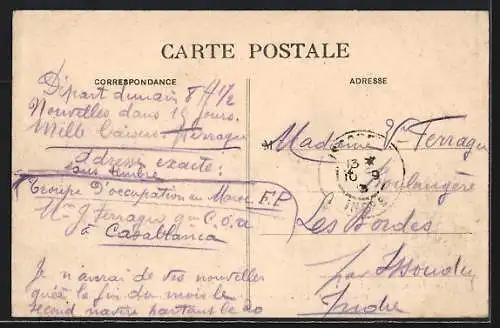 CARTE POSTALE
CORRESPONDANCE
ADRESSE
Départ demain 8 H 1/2
Nouvelles dans 15 jours.
Mille baisers
adresse exacte:
sans timbre
Troupe D'occupation au Maroc F.P
Mr J Ferragu
à Casablanca
Je n'aurai de vos nouvelles
qu'à la fin du mois le
second navire partant le 20
Madame Vve Ferragu
Boulangère
Les Bordes
par Issoudun
Indre
13
10 9
INDRE